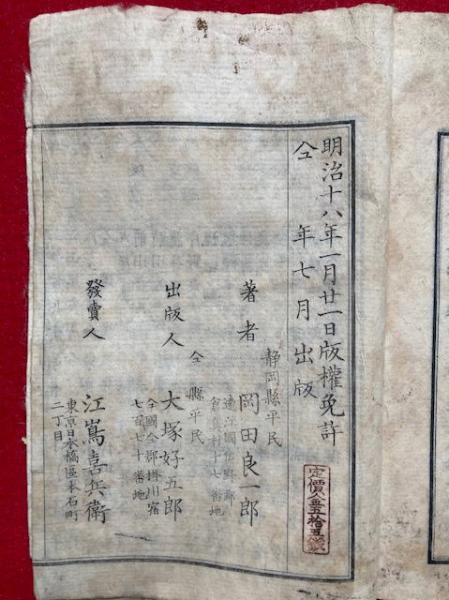 明治十八年一月廿一日版權免許
仝 年七月出版
定價金五拾五錢
静岡縣平民
著者 岡田良一郎
遠江國佐野郡
倉真村十七番地
仝縣平民
出版人 大塚好五郎
仝國仝郡掛川宿
七百七十番地
發賣人 江嶌喜兵衛
東京日本橋區本石町
二丁目